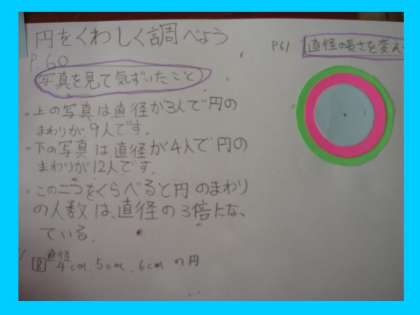 円をくわしく調べよう
P.60
写真を見て気ずいたこと
・上の写真は直径が3人で円の
まわりが9人です.
・下の写真は直径が4人で円の
まわりが12人です.
・この二つをくらべると円のまわり
の人数は、直径の3倍になっ
ている.
直径
4cm、5cm、6cmの円
P61 直径の長さを変え